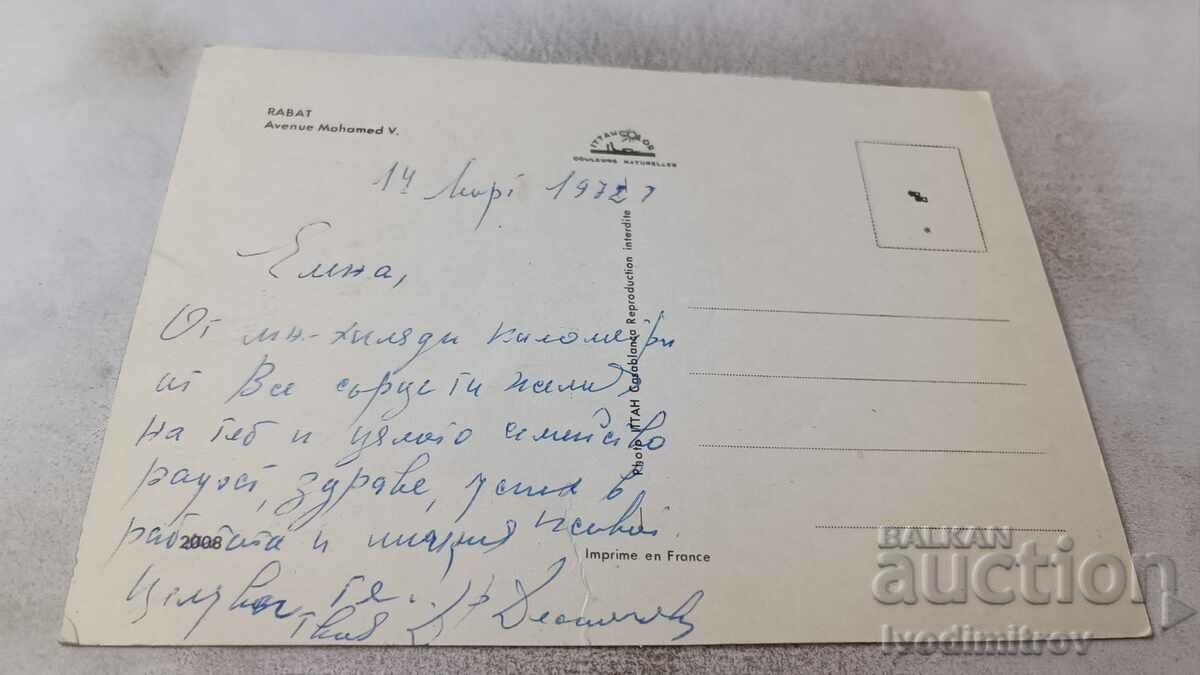 RABAT
Avenue Mohamed V.
ITTAHCOLOR
COULEURS NATURELLES
14 Март 1972 г
Елена,
От мн.-хиляди километри
от Все сърце ти желая
на теб и цялото семейство
радост, здраве, успех в
работата и личния живот.
Целувам те..
Твой
Photo ITTAH Casablanca Reproduction interdite
2008
Imprime en France
BALKAN
auction
lvodimitrov